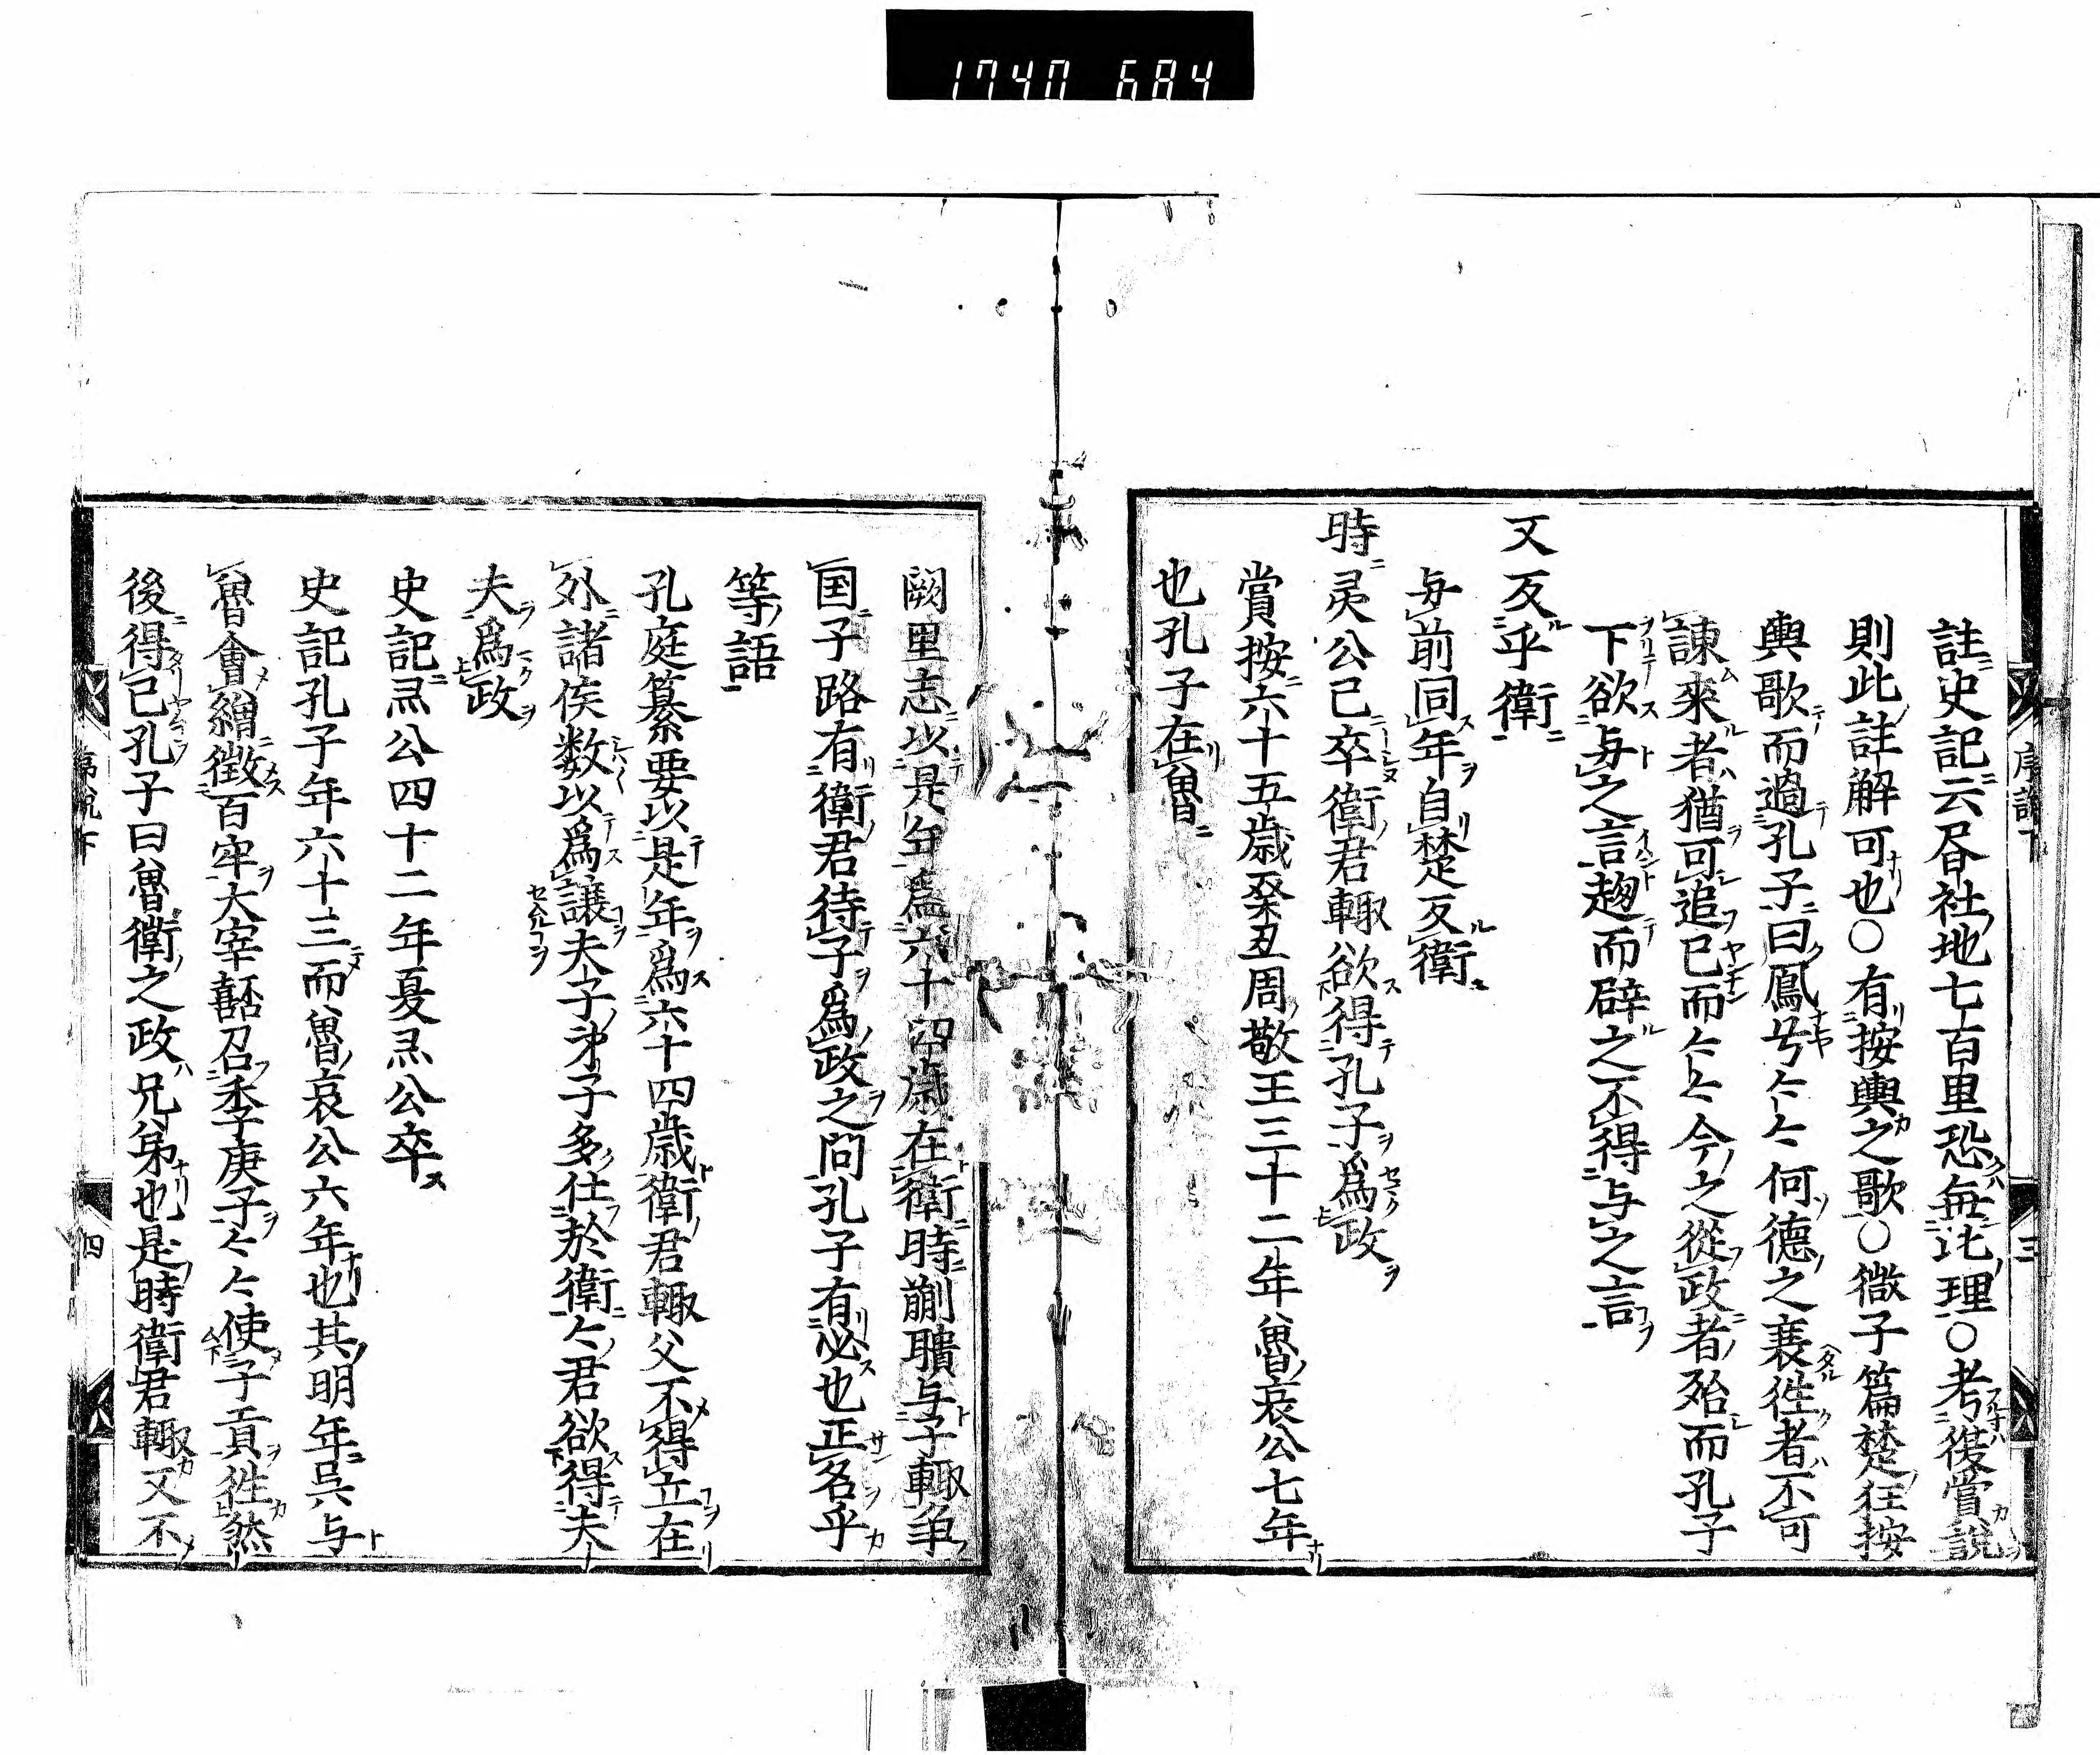 1740 684
註史記云昏社地七百里恐無此理○考復賞說
則此註解可也○有按輿之歌○微子篇楚狂按
輿歌而過孔子曰鳳兮々々何德之衰徃者不可
諫來者猶可追已而々々今之從政者殆而孔子
下欲与之言趨而辟之不得与之言
又反乎衛
与前同年自楚反衛
時灵公已卒衛君輙欲得孔子為政
賞按六十五歳癸丑周敬王三十二年魯哀公七年
也孔子在魯
序說下 三
闕里志以是年為六十四歳在衛時蒯聵与子輙争
国子路有衛君待子為政之問孔子有必也正名乎
等語
孔庭纂要以是年為六十四歳衛君輙父不得立在
外諸侯数以為譲夫子弟子多仕於衛々君欲得夫
夫為政
史記灵公四十二年夏灵公卒
史記孔子年六十三而魯哀公六年也其明年呉与
魯會繒徴百牢大宰嚭召季庚子々々使子貢徃然
後得已孔子曰魯衛之政兄弟也是時衛君輙父不
序說下 四